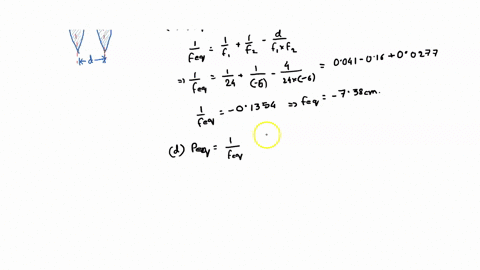 d
1/f_eq = 1/f_1 + 1/f_2 - d/(f_1×f_2)
⇒ 1/f_eq = 1/24 + 1/(-6) - 4/(24×(-6)) = 0.041-0.16+0.0277
1/f_eq = -0.1354 ⇒ f_eq = -7.38cm.
(d) P_eq = 1/f_eq